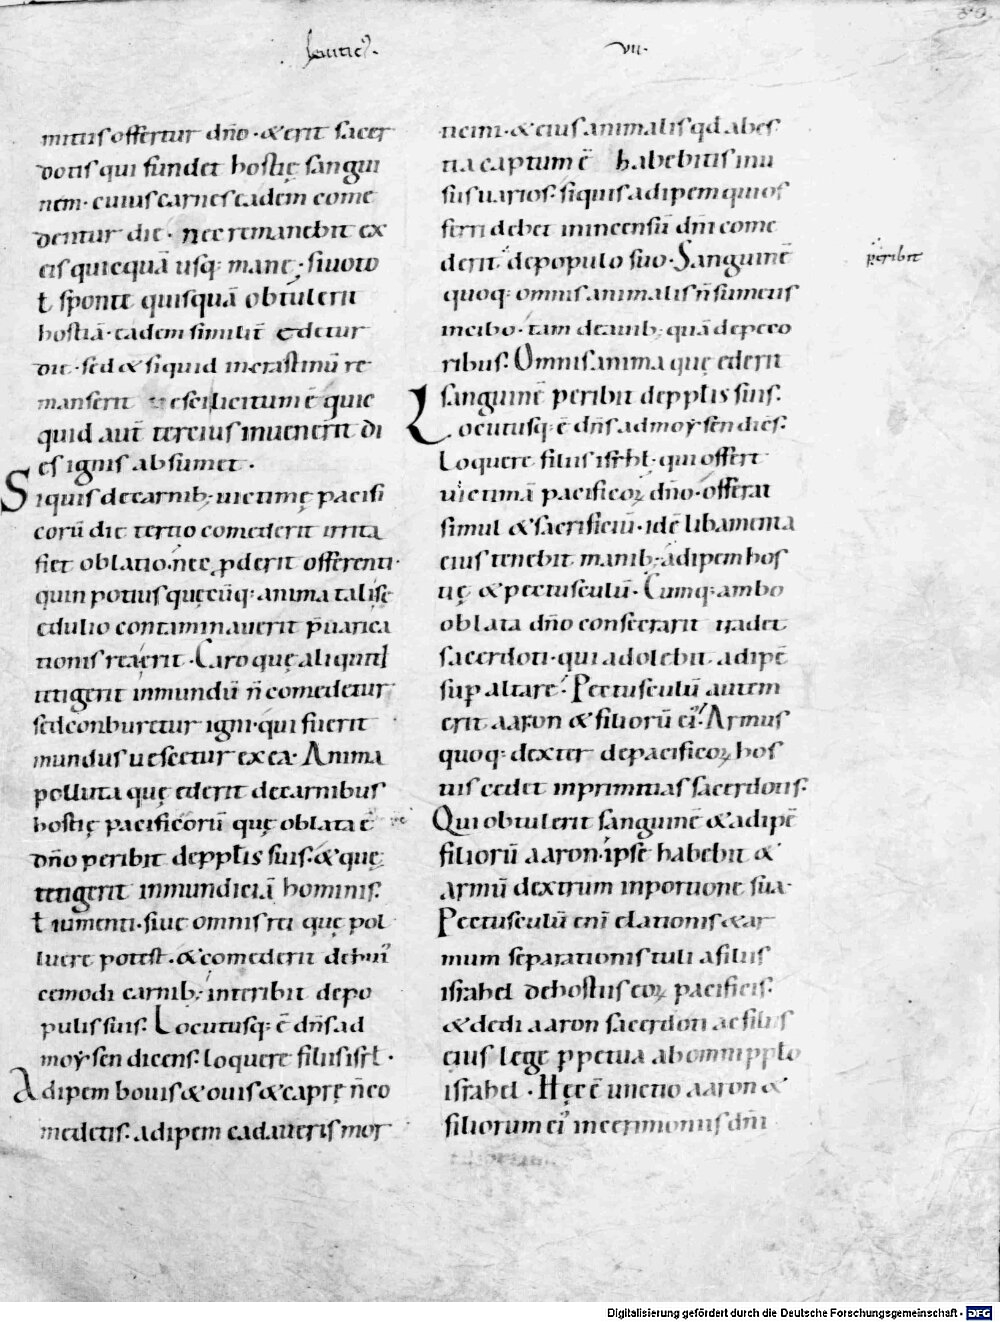 leuitic᾽.
vii.
89
mitius offertur dño · & erit sacer
dotis qui fundet hostię sangui
nem · cuius carnes eadem come
dentur die · nec remanebit ex
eis quicquā usq; mane; si uoto
ł sponte quisquā obtulerit
hostiā · eadem similit̄ edetur
die · sed & siquid incrastinū re
manserit uesci licitum ē quic
quid aut̄ tercius inuenerit di
es ignis absumet .
Siquis decarnib; uictimę pacifi
corū die tertio comederit irrita
fiet oblatio. nec ꝓderit offerenti·
quin potius quęcūq; anima talise
edulio contaminauerit p̄uarica
tionis rea erit · Caro quę aliquid
tetigerit inmundū ñ comedetur
sed conburetur igni · qui fuerit
mundus uescetur ex ea · Anima
polluta quę ederit decarnibus
hostię pacificorū quę oblata ē
dño peribit depp̄lis suis · & quę
tetigerit inmundiciā hominis.
ł iumenti · siue omnis rei quę pol
luere potest · & comederit dehui᾽
cemodi carnib; interibit depo
pulis suis. Locutusq; ē dñs ad
moysen dicens. loquere filiis isrł ·
Adipem bouis & ouis & caprę ñ co
medetis. adipem cadaueris mor
ticini · & eius animalis qd abes
tia captum ē habebitis inu
sus uarios. siquis adipem qui of
ferri debet inincensū dñi come
derit depopulo suo · Sanguinē
peribit
quoq; omnis animalis ñ sumetis
incibo · tam deauib; quā depeco
ribus. Omnis anima quę ederit
sanguinē peribit depp̄lis suis.
Locutusq; ē dñs ad moysen dicēs.
Loquere filiis isrhł; qui offert
uictimā pacificoꝝ dño · offerat
simul & sacrificiū · idē libamenta
eius tenebit manib; adipem hos
tię & pectusculū · Cumq; ambo
oblata dño consecrarit tradet
sacerdoti · qui adolebit adipē
sup̄ altare. Pectusculū autem
erit aaron & filiorū ei᾽. Armus
quoq; dexter depacificoꝝ hos
tiis cedet inprimitias sacerdotis.
Qui obtulerit sanguinē & adipē
filiorū aaron · ipse habebit &
armū dextrum inportione sua ·
Pectusculū eni elationis & ar
mum separationis tuli afiliis
israhel dehostiis eoꝝ pacificis.
& dedi aaron sacerdoti ac filiis
eius lege ꝑpetua abomni pp̄lo
israhel · Hęc ē unctio aaron &
filiorum ei᾽ incerimoniis dñi
Digitalisierung gefördert durch die Deutsche Forschungsgemeinschaft - DFG